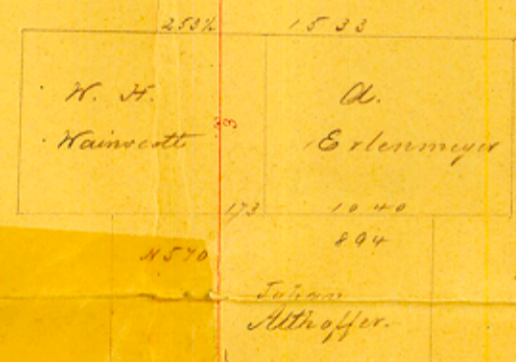 253½ 1533
W. H. A.
Wainscott Erlenmeyer
3
173 1040
894
N 570
Johan
Althoffer.